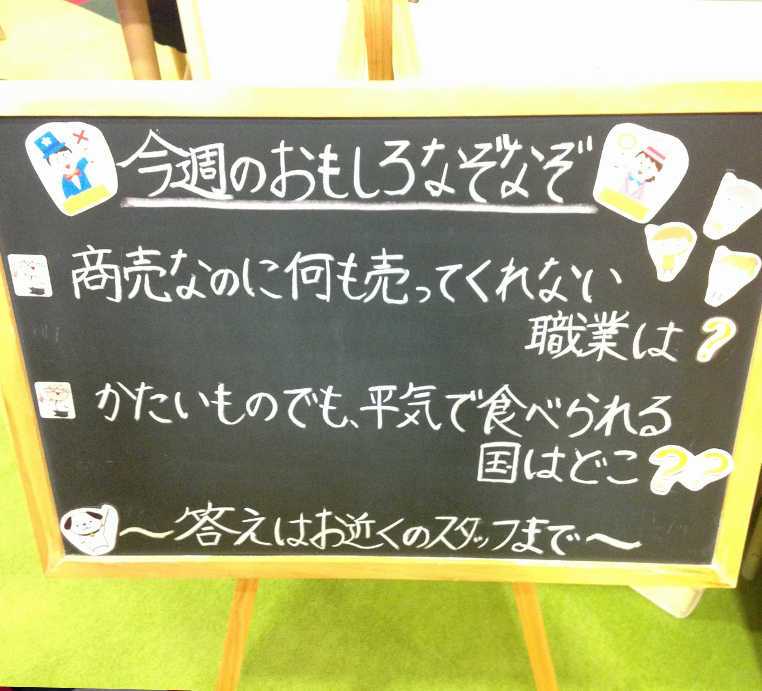 今週のおもしろなぞなぞ
商売なのに何も売ってくれない
職業は?
かたいものでも、平気で食べられる
国はどこ??
～答えはお近くのスタッフまで～